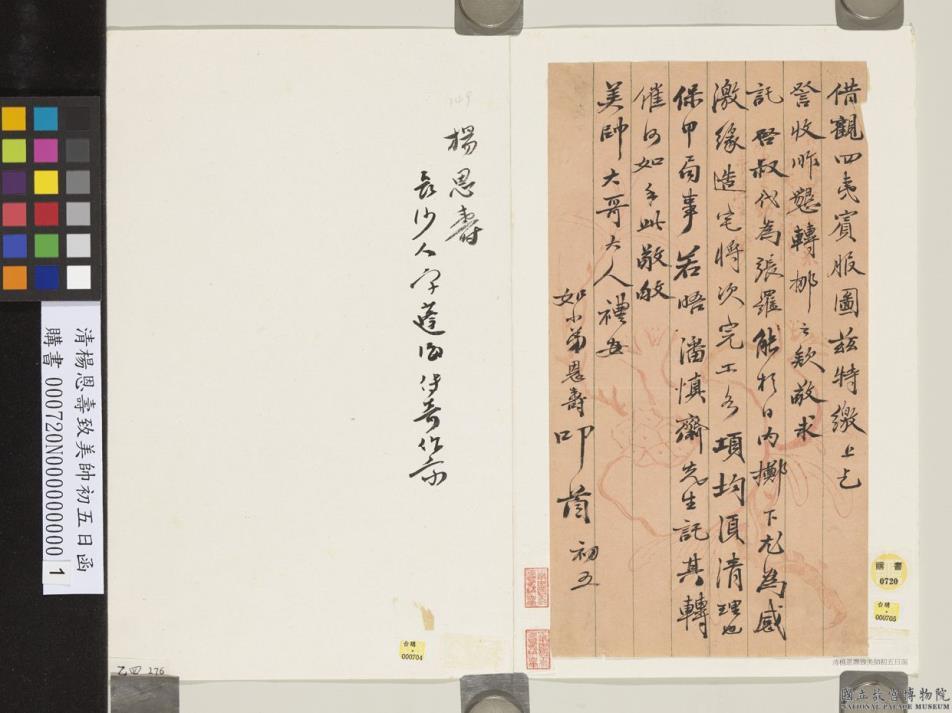 借觀四夷賓服圖茲特繳上乞
詧收昨懇轉挪之欵敬求
託啓叔代為張羅能於日內擲下尤為感
激緣造宅將次完工各項均須清理也
保甲局事若晤潘慎齋先生託其轉
催何如手此敬啟
美帥大哥大人禮安
如小弟恩壽叩首初五
楊恩壽
長沙人字蓬海
149
清楊恩壽致美帥初五日函
購書 000720N000000000 1
乙四 276
台購
000704
購書
0720
台購
000705
清楊恩壽致美帥初五日函
國立故宮博物院
NATIONAL PALACE MUSEUM